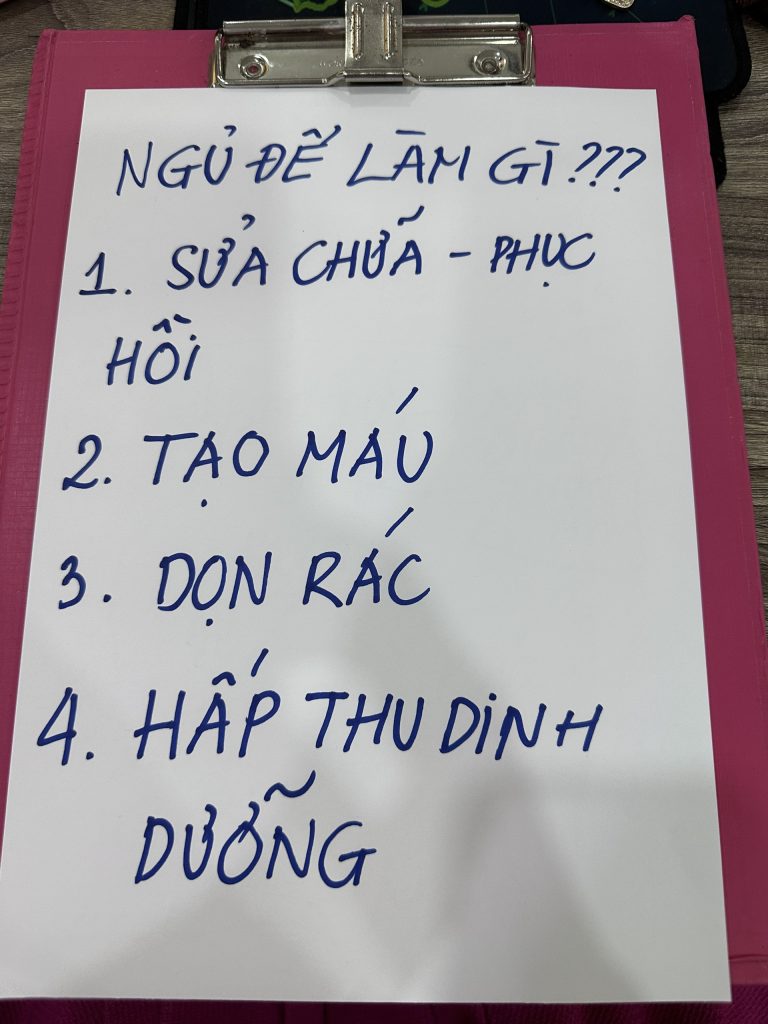 NGỦ ĐỂ LÀM GÌ???
1. SỬA CHỮA - PHỤC
HỒI
2. TẠO MÁU
3. DỌN RÁC
4. HẤP THU DINH
DƯỠNG